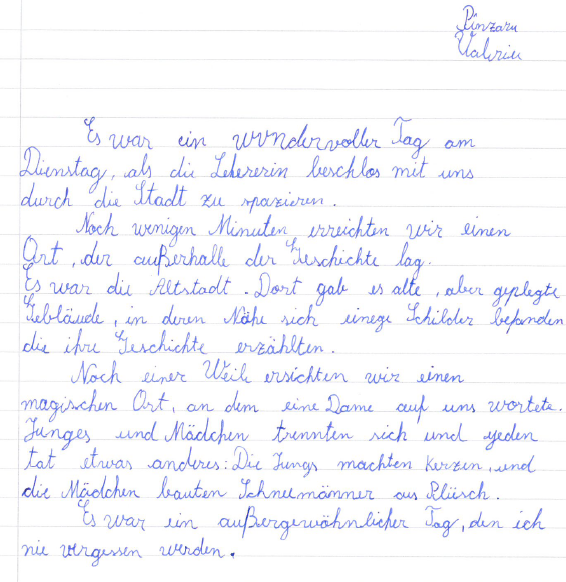 Pînzaru
Valeriu
Es war ein wundervoller Tag am
Dienstag, als die Lehererin beschlos mit uns
durch die Stadt zu spazieren.
Noch wenigen Minuten erreichten wir einen
Ort, der außerhalle der Geschichte lag.
Es war die Altstadt. Dort gab es alte, aber geplegte
Gebläude, in deren Nähe sich einege Schilder befanden
die ihre Geschichte erzählten.
Noch einer Weile ersichten wir einen
magischen Ort, an dem eine Dame auf uns wortete.
Junges und Mädchen trennten sich und yeden
tat etwas anderes: Die Jungs machten Kerzen, und
die Mädchen bauten Schneemänner aus Plüsch.
Es war ein außergewöhnlicher Tag, den ich
nie vergessen werden.